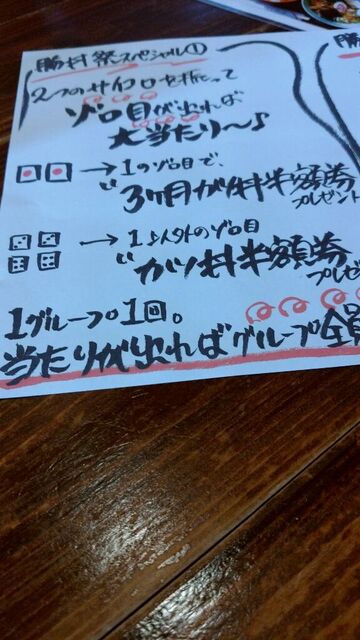 勝村祭スペシャル①
2つのサイコロを振って
ゾロ目が出れば
大当たり〜♪
→1のゾロ目で、
"3ヶ月勝村半額券
プレゼント
→1以外のゾロ目
"勝村半額券
プレゼ
1グループ1回。
当たりが出ればグループ全員